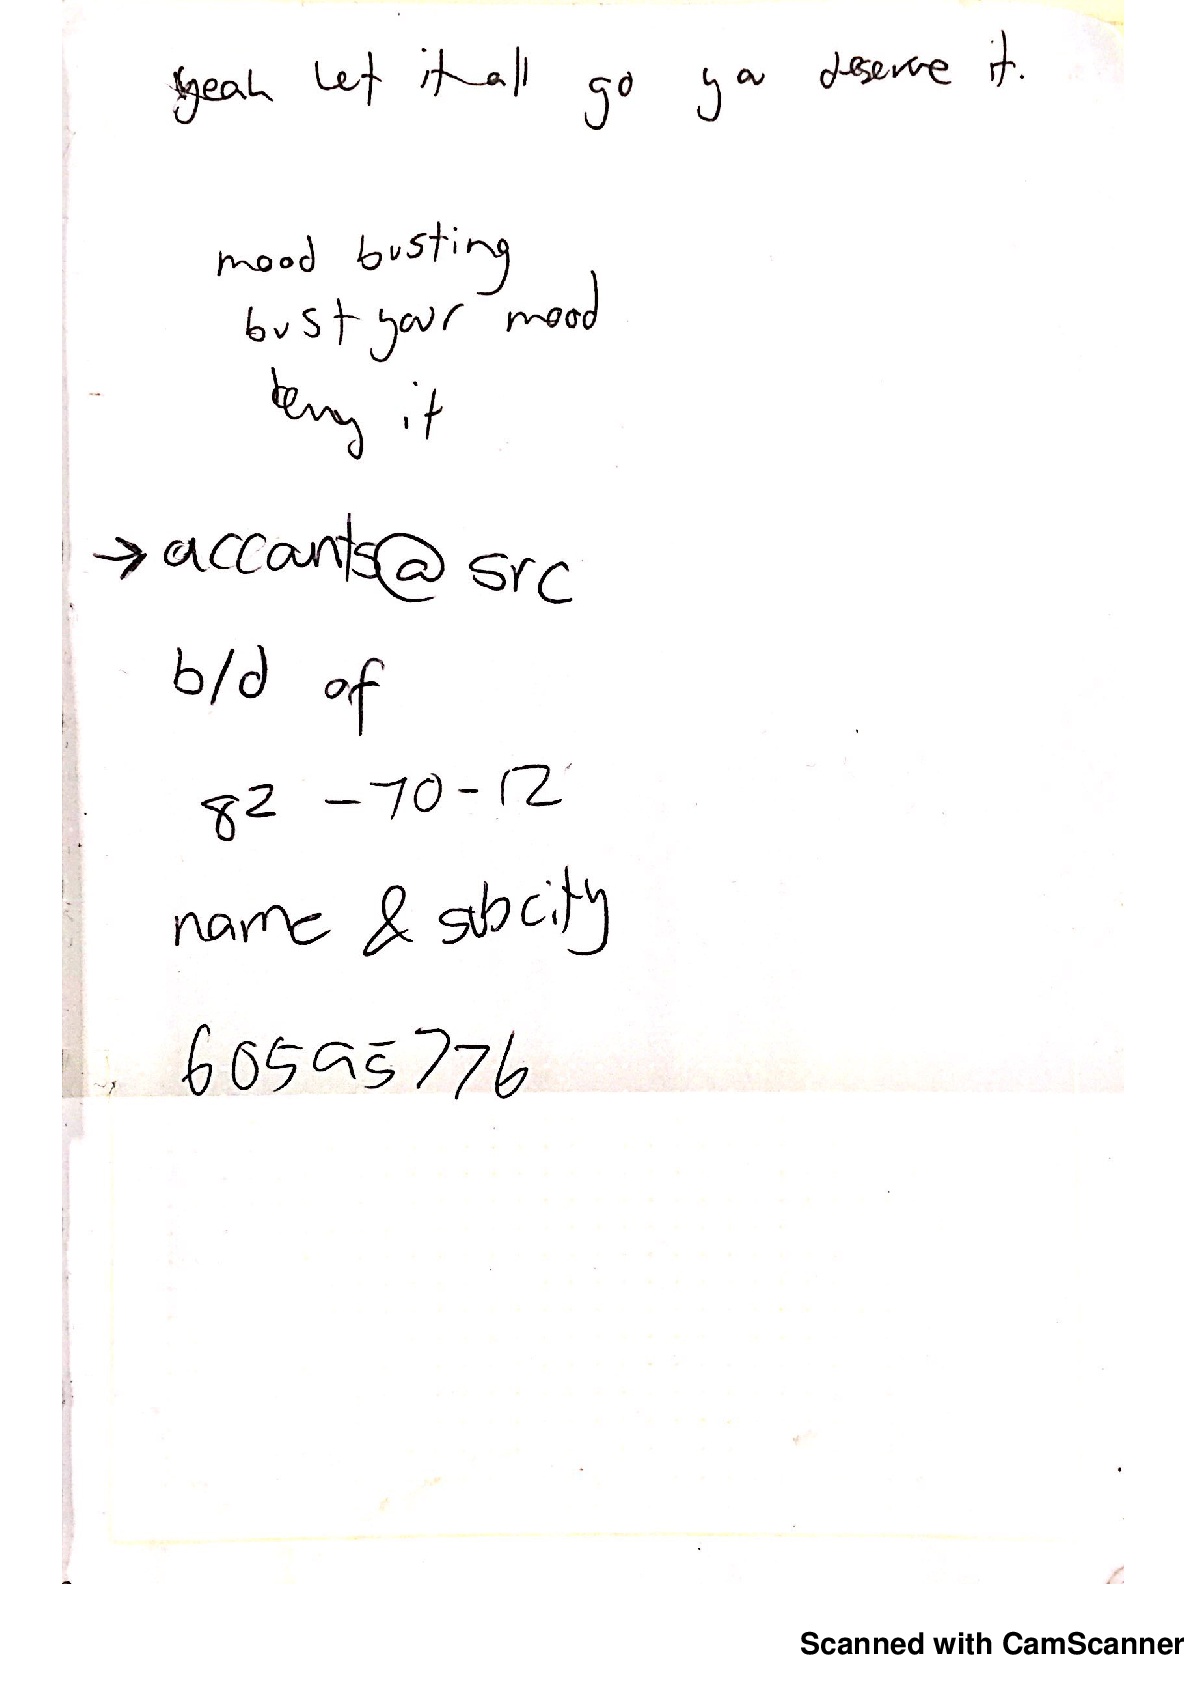 yeah let it all go ya deserve it.
mood busting
bust your mood
deny it
→ accounts@ src
b/d of
82 - 70 - 12
name & subcity
60595776
Scanned with CamScanner